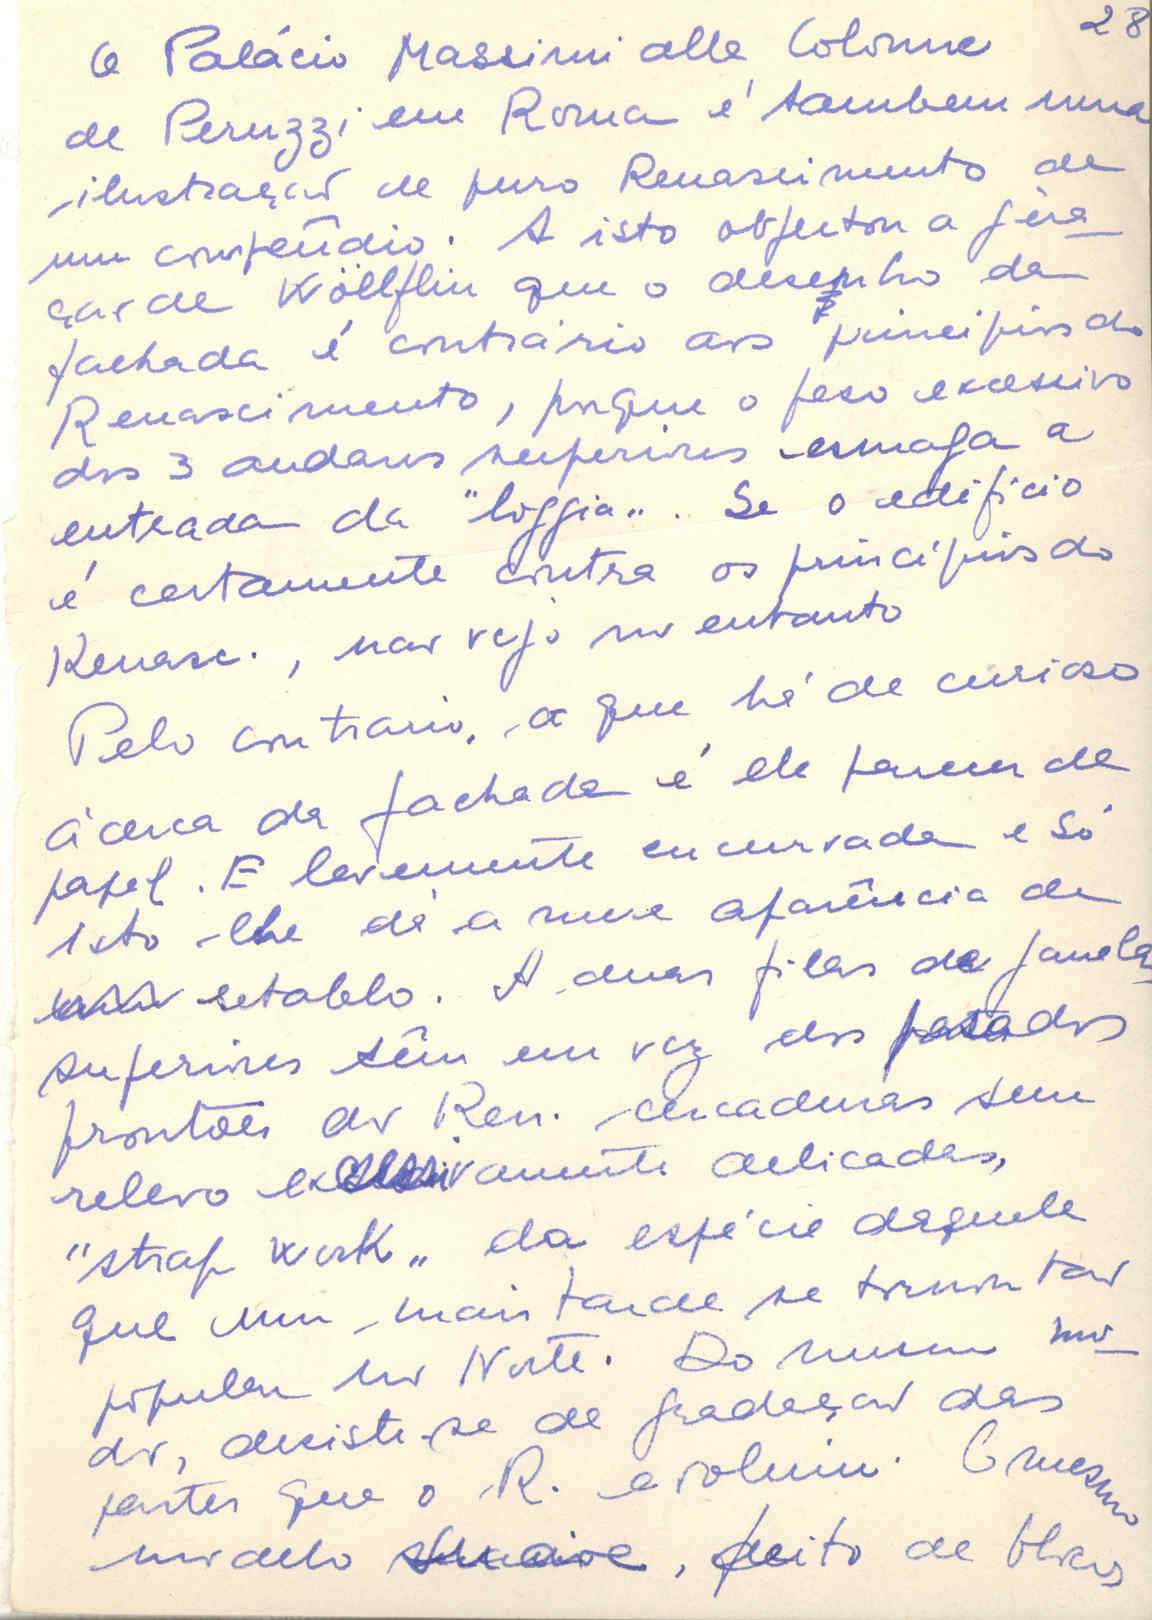 28
O Palácio Massimi alle Colonne
de Peruzzi em Roma é tambem uma
ilustração de puro Renascimento de
um compêndio. A isto objectou a gera-
ção de Wölfflin que o desenho da
fachada é contrário aos principios do
Renascimento, porque o peso excessivo
dos 3 andares superiores esmaga a
entrada da "loggia". Se o edifício
é certamente contra os princípios do
Renasc., não vejo no entanto
Pelo contrario, o que há de curioso
ácerca da fachada é ela parecer de
papel. E levemente encurvada e só
isto lhe dá a nuve aparência de
retablo. A duas filas de janela
superiores têm em vez dos pesados
frontões do Ren. cercaduras sem
relevo excessivamente delicadas,
"strap work" da espécie daquele
que um mais tarde se tornou tão
popular no Norte. Do mesmo mo-
do, desiste-se de gradação das
partes que o R. evoluiu. O mesmo
modelo , feito de blocos